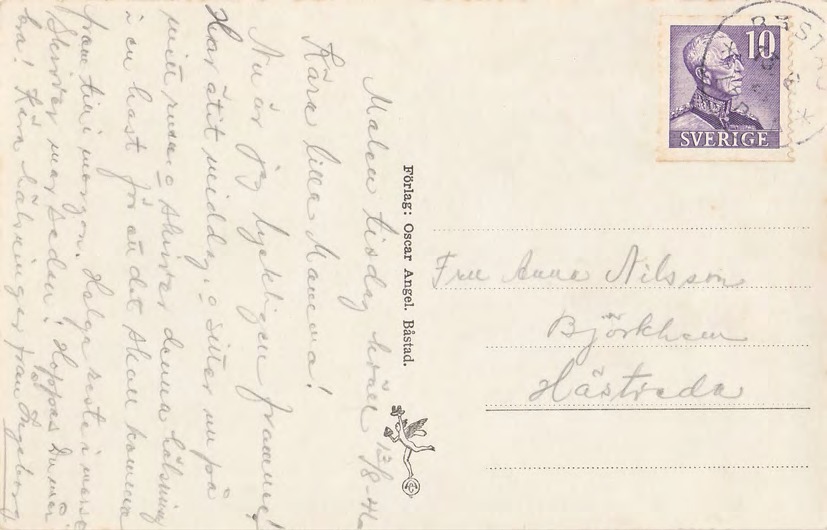 Malen tisdag kväll 13/8-46
Kära lilla Mamma!
Nu är jag lyckligen framme!
Har ätit middag, o sitter nu på
mitt rum o skriver denna hälsning
i en hast för att det skall komma
fram till i morgon. Helge reste i morse
Skriver mer sedan! Hoppas Du mår
bra! Kära hälsningar från Ingeborg
Förlag: Oscar Angel. Båstad.
BÅSTAD
10
SVERIGE
Fru Anna Nilsson
Björkhem
Hästveda